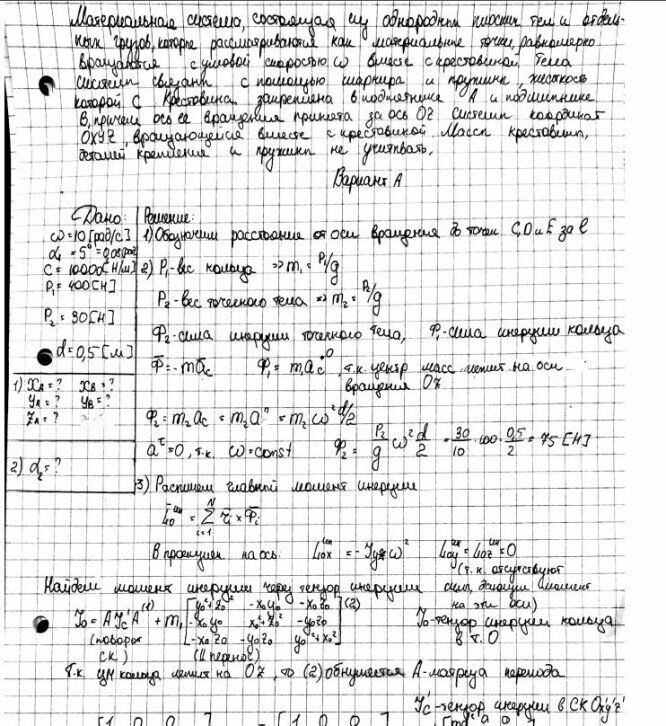 Материальная система, состоящая из однородных плоских тел и отдель-
ных грузов, которые рассматриваются как материальные точки, равномерно
вращаются с угловой скоростью ω вместе с крестовиной. Тела
системы связаны с помощью шарнира и пружины жесткость
которой C. Крестовина закреплена в подпятнике A и подшипнике
B, причем ось ее вращения принята за ось OZ системы координат
OXYZ, вращающейся вместе с крестовиной. Массы крестовины,
деталей крепления и пружины не учитывать.
Вариант A
Дано:
ω = 10 [рад/с]
α₁ = 5°
C = 10000 [Н/м]
P₁ = 400 [Н]
P₂ = 30 [Н]
d = 0,5 [м]
1) X_A = ? X_B = ?
Y_A = ? Y_B = ?
Z_A = ?
2) α₂ = ?
Решение:
1) Обозначим расстояние от оси вращения до точек C, D и E за l
2) P₁ - вес кольца ⇒ m₁ = P₁/g
P₂ - вес точечного тела ⇒ m₂ = P₂/g
Φ₂ - сила инерции точечного тела, Φ₁ - сила инерции кольца
Φ̄ = -mā_c Φ₁ = m₁a_c⁰, т.к. центр масс лежит на оси
вращения OZ
Φ₂ = m₂a_c = m₂aⁿ = m₂ω² d/2
a^τ = 0, т.к. ω = const Φ₂ = P₂/g ω² d/2 = 30/10 · 100 · 0,5/2 = 75 [Н]
3) Распишем главный момент инерции
L̄₀^ин = Σ_{i=1}^N r̄ᵢ × Φ̄ᵢ
В проекции на ось: L_ox^ин = -J_yz ω² L_oy^ин = L_oz^ин = 0
(т.к. отсутствуют
Найдем момент инерции через тензор инерции силы, дающие момент
на эти оси)
J₀ = A J'_c A⁽¹⁾ + m₁ [y₀²+z₀² -x₀y₀ -x₀z₀; -x₀y₀ x₀²+z₀² -y₀z₀; -x₀z₀ -y₀z₀ y₀²+x₀²] (2) J₀ - тензор инерции кольца
в т. O
(поворот
ск.) (II перенос)
Т.к. цм кольца лежит на OZ, то (2) обнуляется A - матрица перехода
J'_c - тензор инерции в СК Ox'y'z'